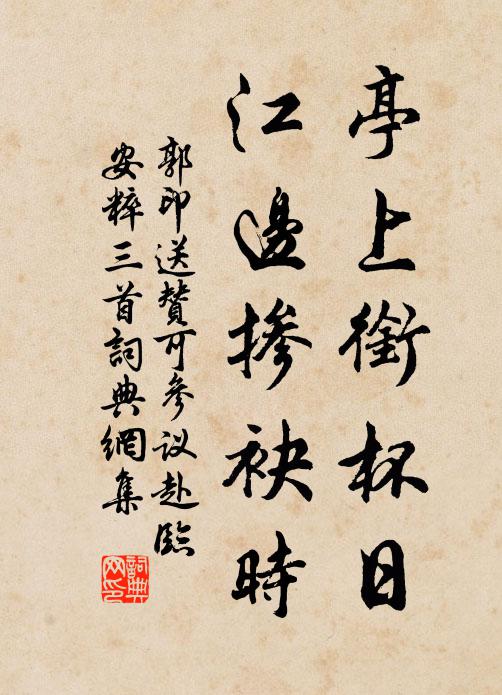 亭上銜杯日
江邊摻袂時
郭印送贊可參议赴臨
安粹三首詞典網集
詞典网印